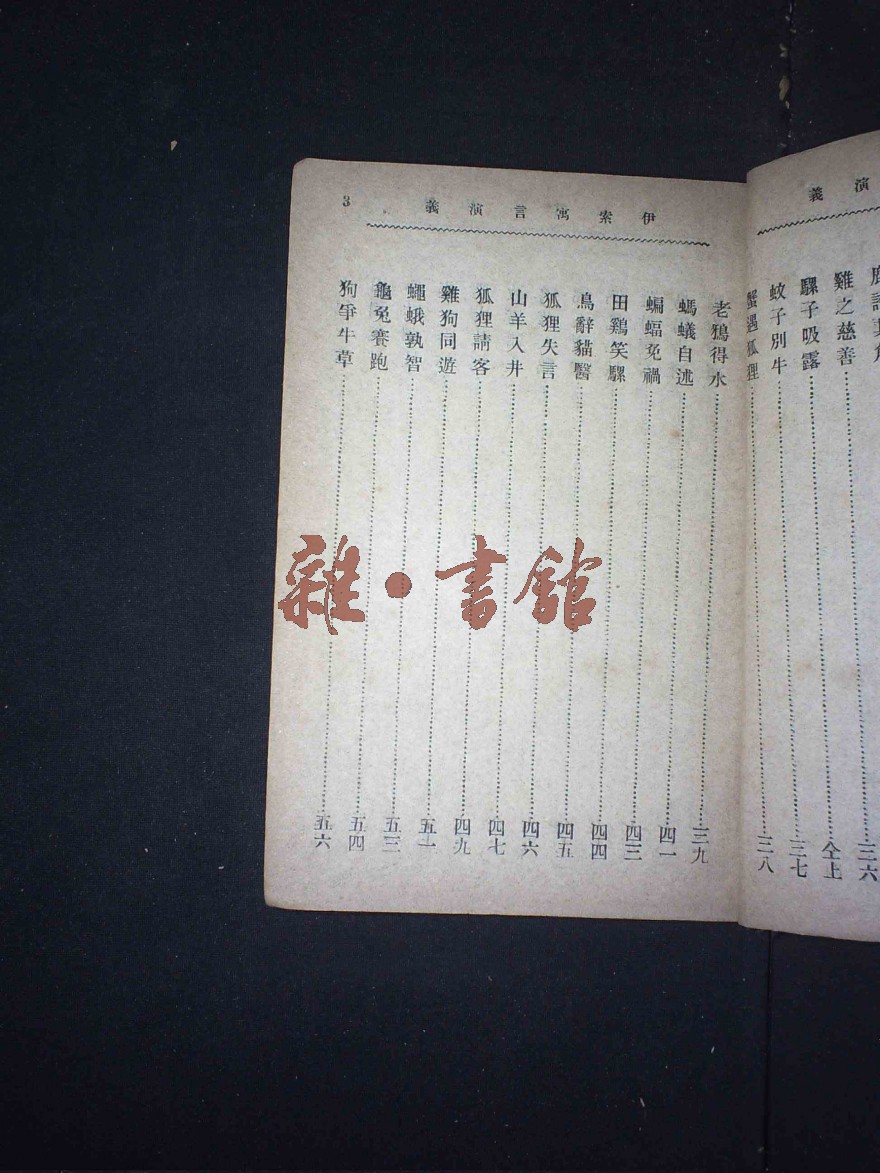 演義
雞之慈善……仝上
騾子吸露……三七
蚊子別牛……三八
蟹遇狐狸……
伊索寓言演義 3
老鴉得水……三九
螞蟻自述……四一
蝙蝠免禍……四三
田鷄笑騾……四四
鳥辭貓醫……四五
狐狸失言……四六
山羊入井……四七
狐狸請客……四九
雞狗同遊……五一
蠅蛾孰智……五三
龜兔賽跑……五四
狗爭牛草……五六
雜·書館